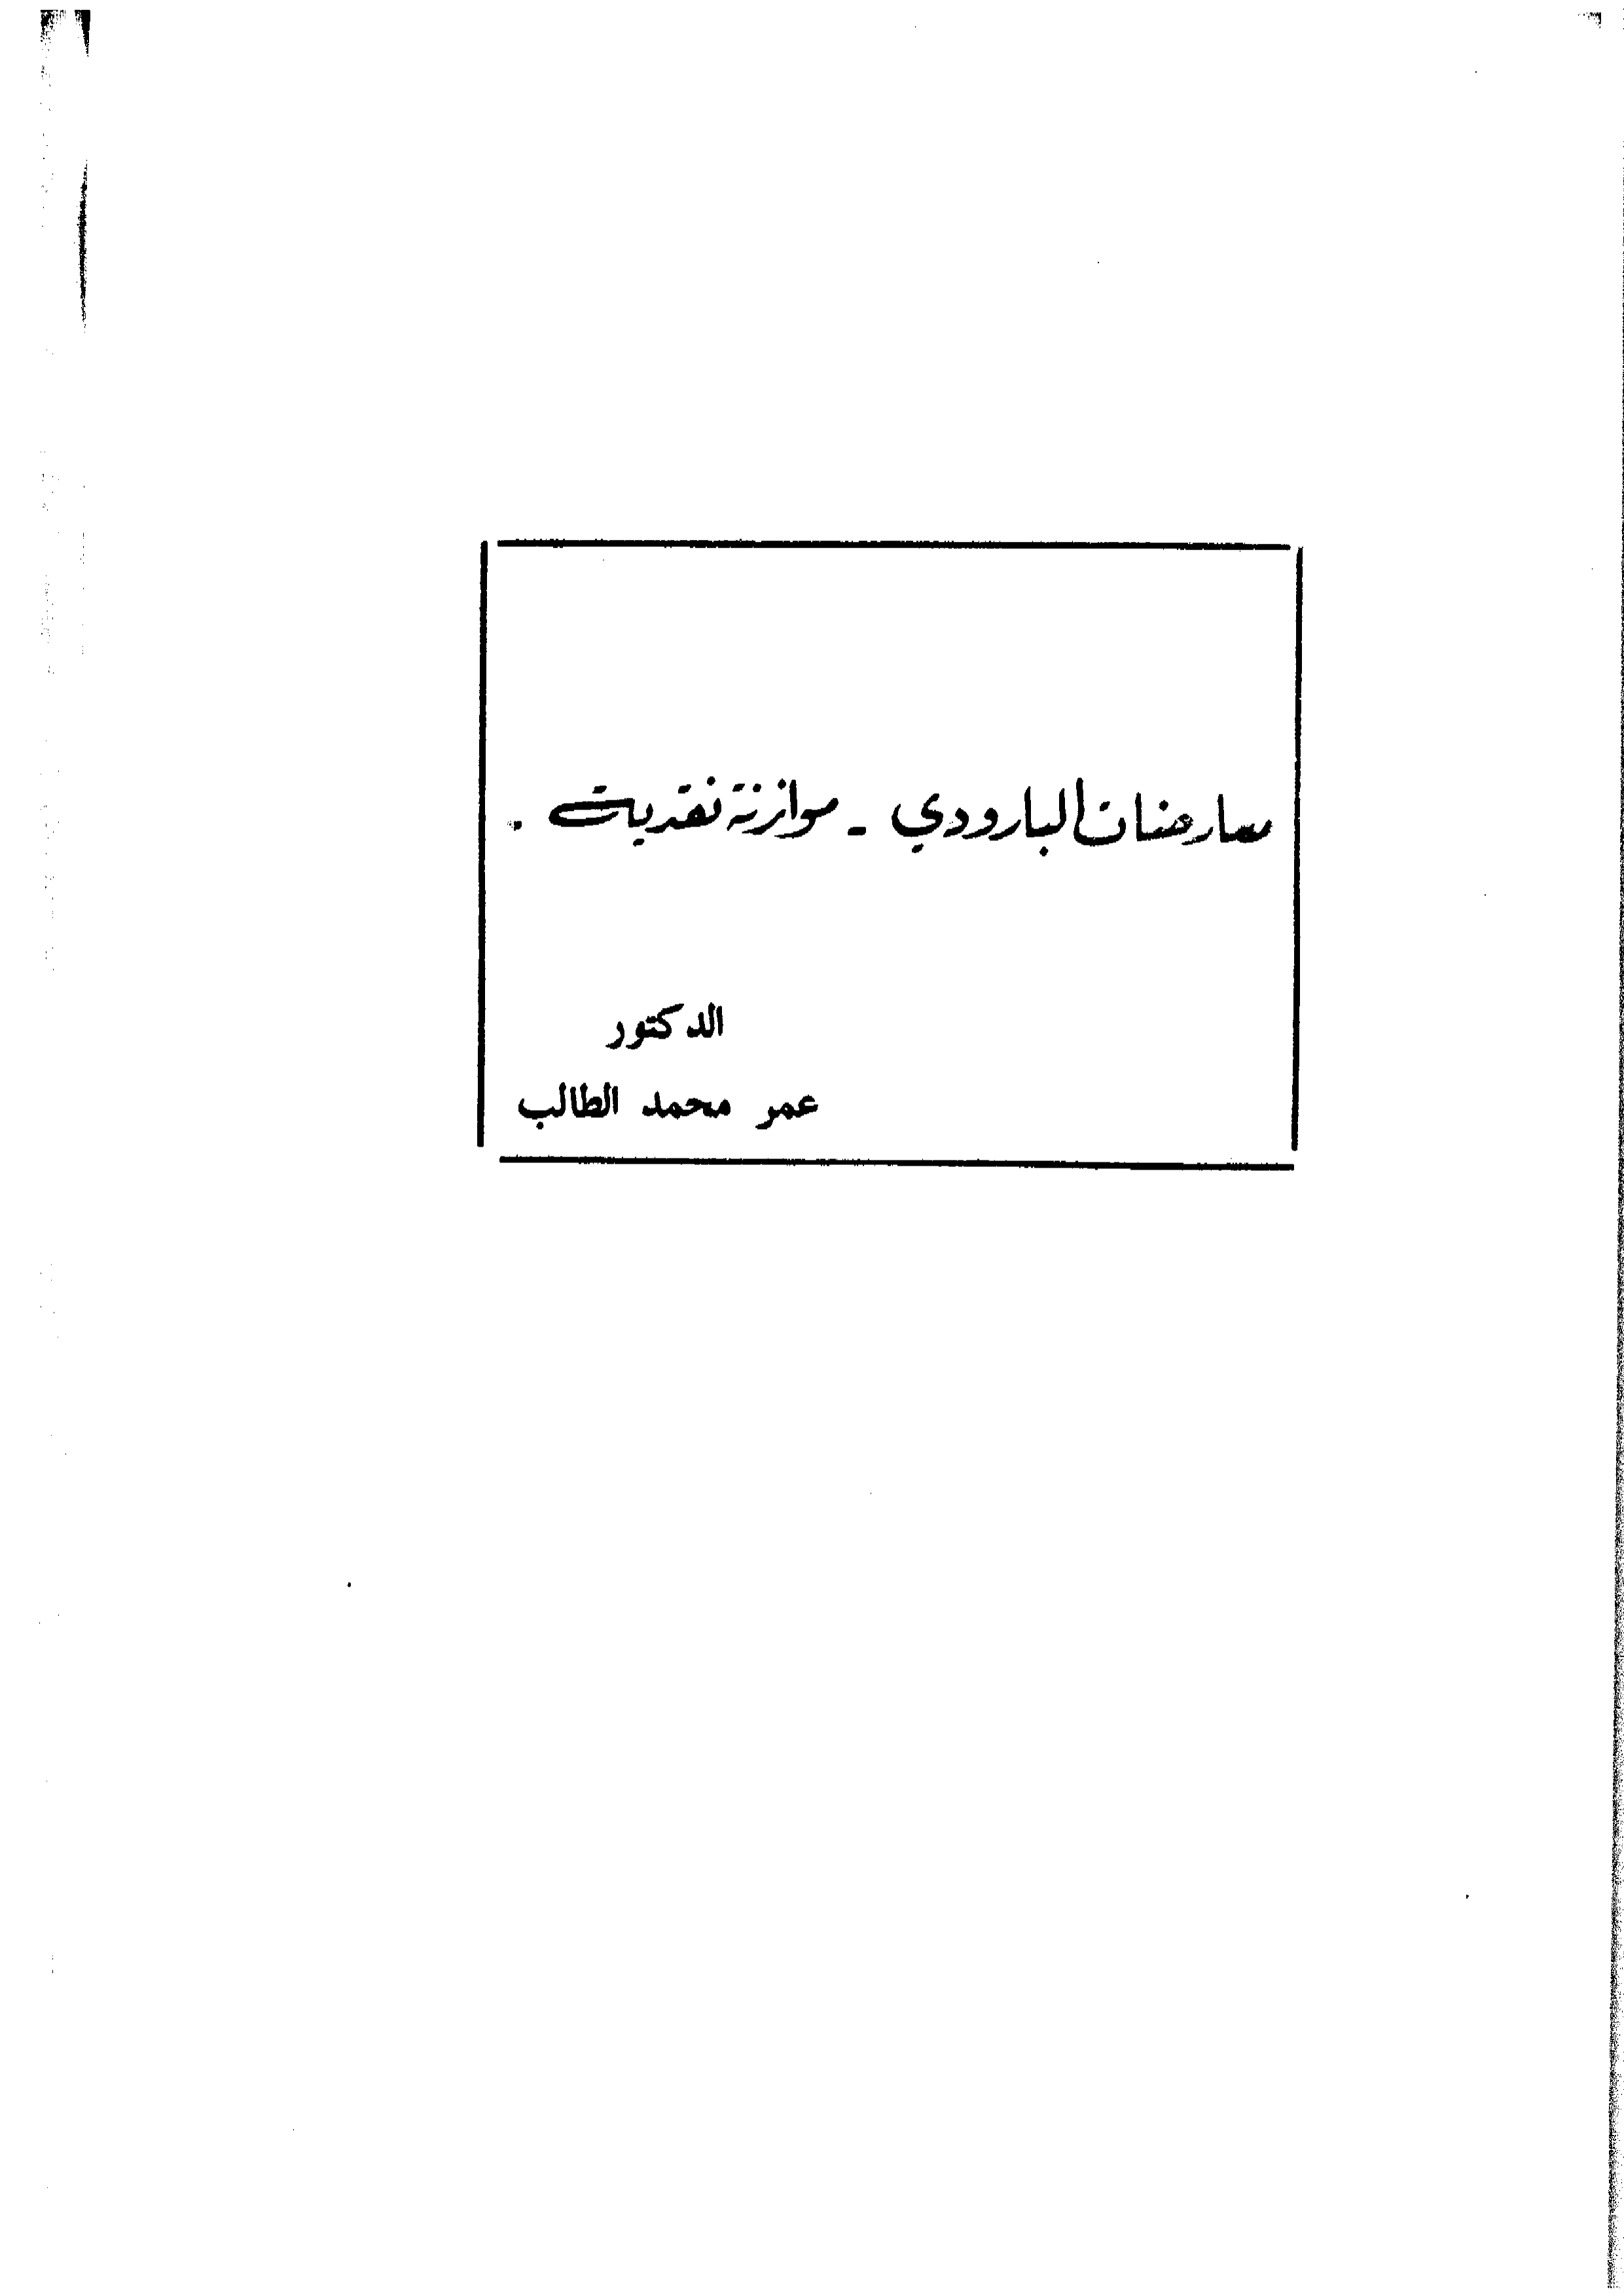 معارضات البارودي - موازنة نقدية .
الدكتور
عمر محمد الطالب